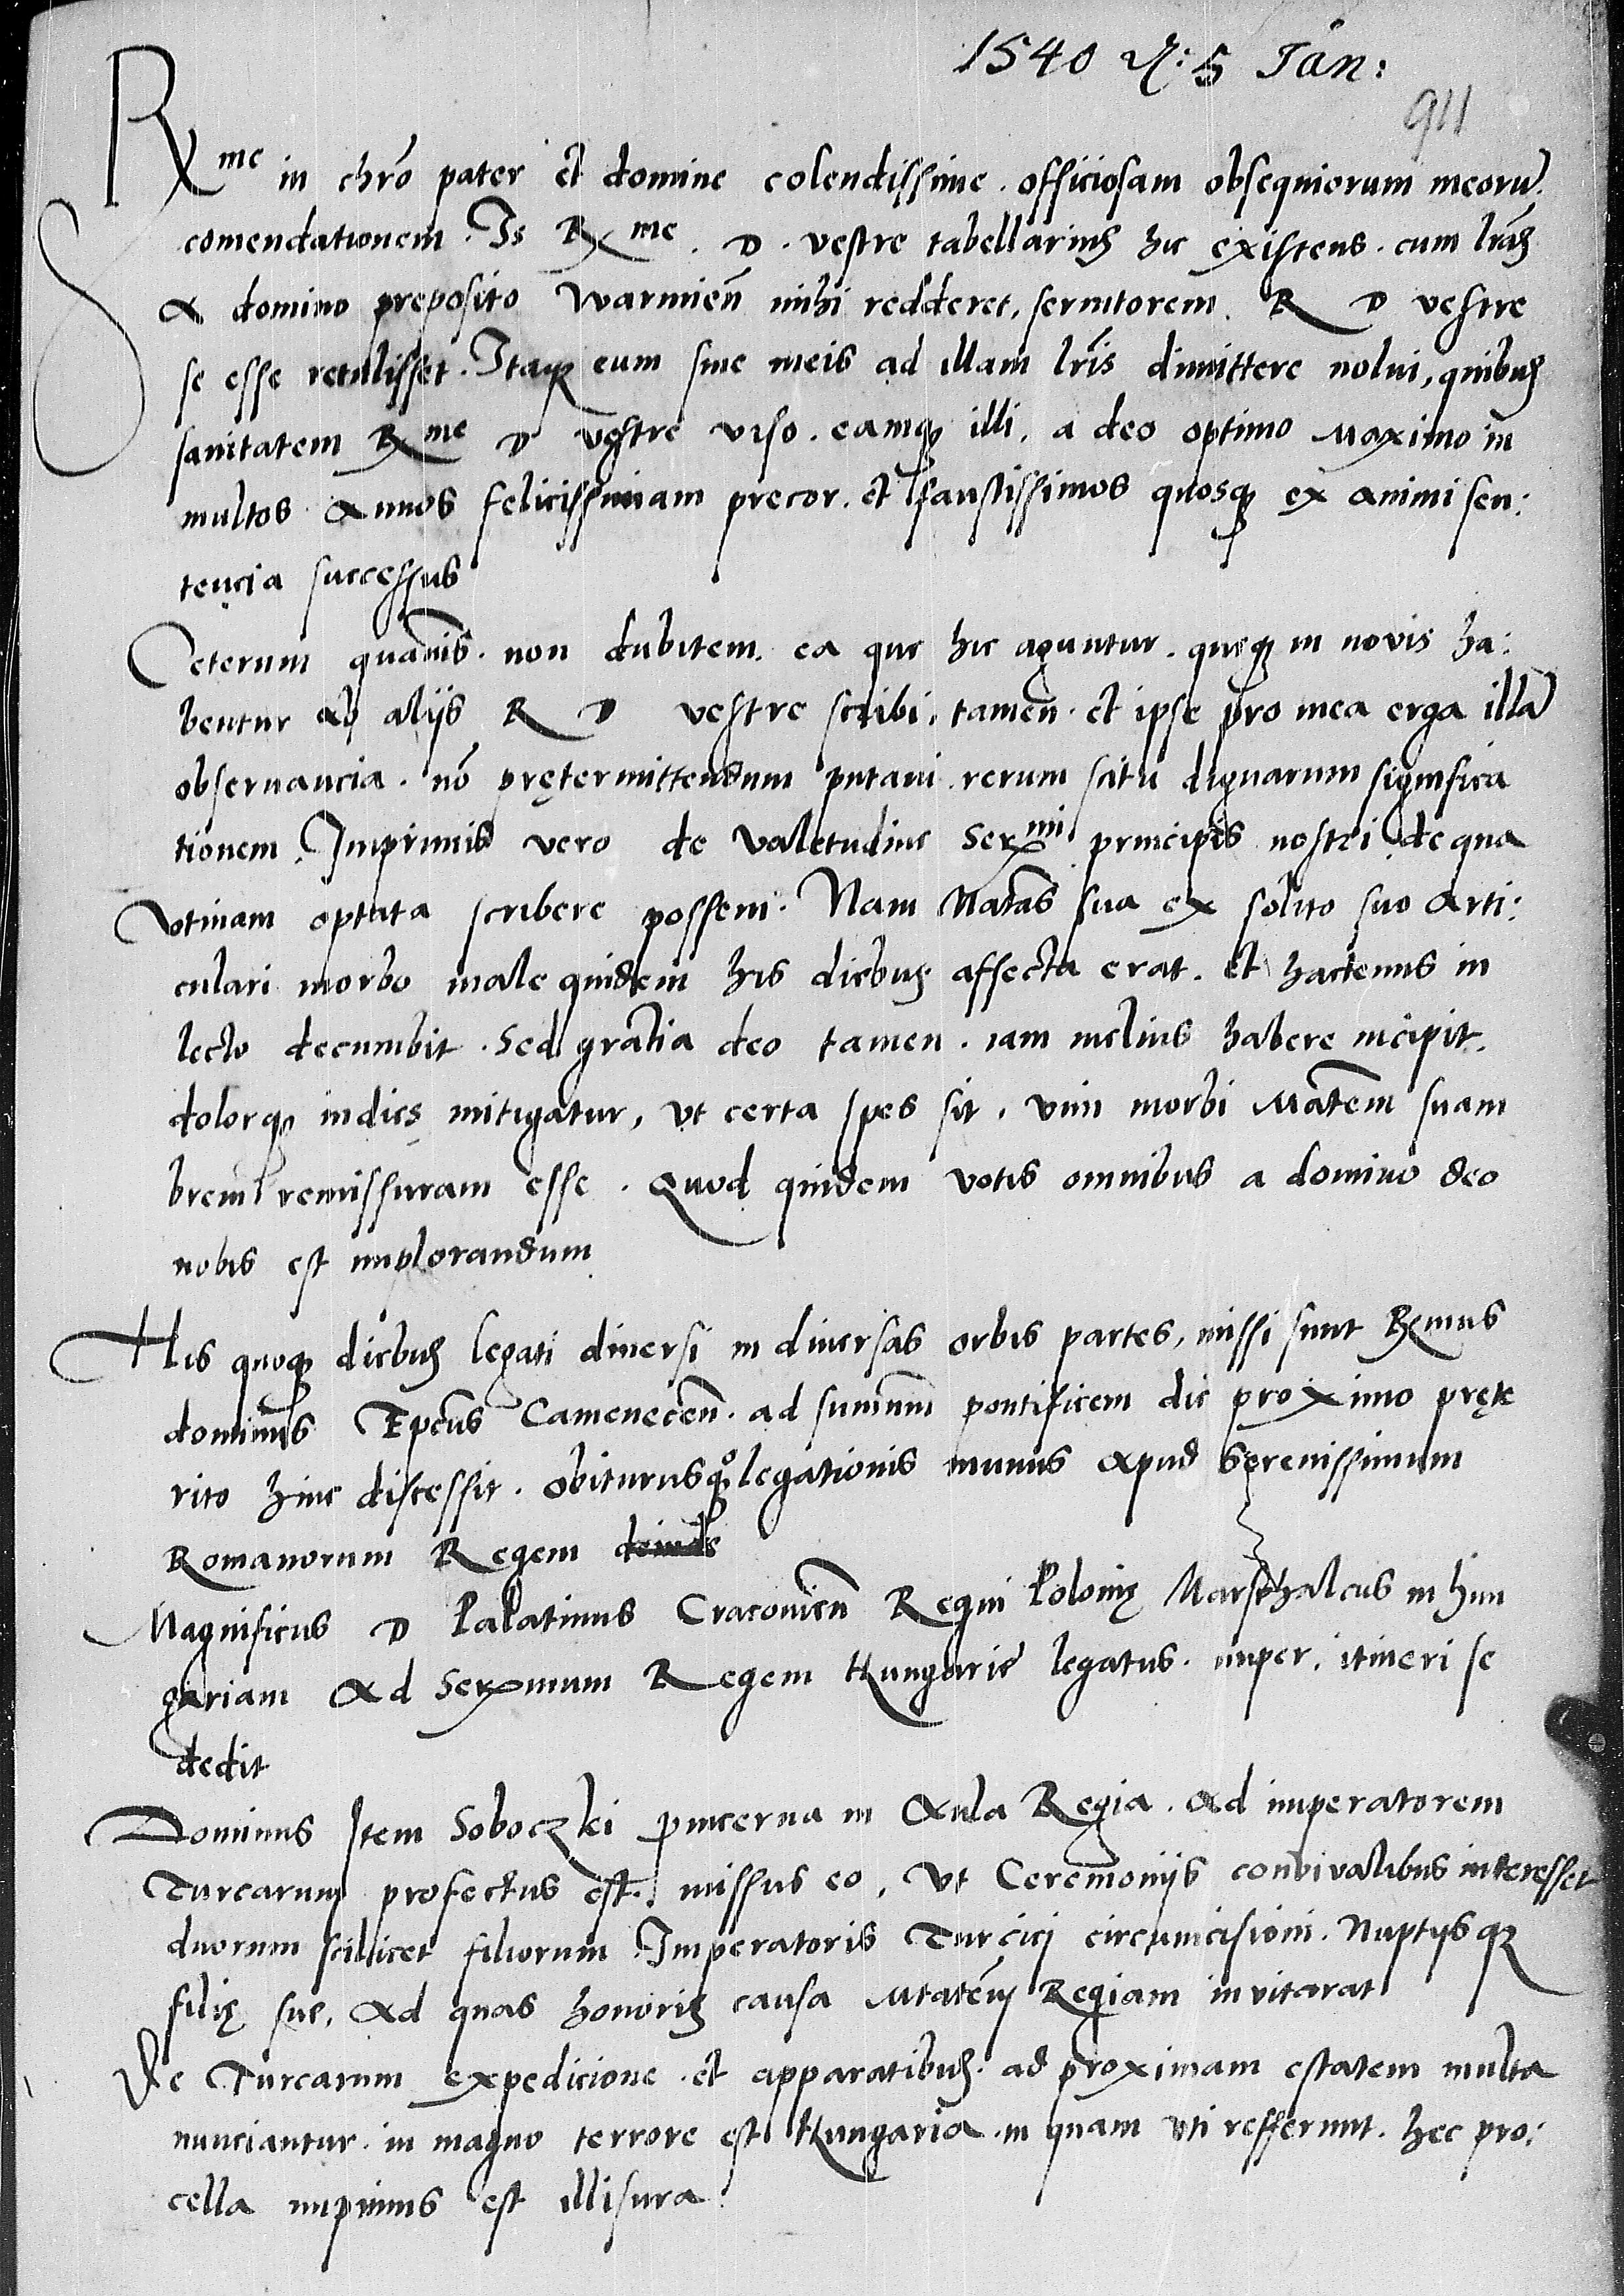 1540 d: 5 Jan:
911
Rme in chro pater et domine colendissime. officiosam obsequiorum meoru.
comendationem. Is Rme. D. vestre tabellarius hic existens. cum lras
a domino preposito Warmien mihi redderet, servitorem. R D vestre
se esse retulisset. Itaq eum sine meis ad illam lris dimittere nolui, quibus
sanitatem Rme D vestre viso. eamq illi. a deo optimo Maximo in
multos annos felicissimam precor. et faustissimos quosq ex animi sen:
tencia successus
Ceterum quamis. non dubitem. ea que hic aguntur. queq in novis ha:
bentur ab aliis R D vestre scribi. tamen et ipse pro mea erga illa
observancia. no prętermittendum putavi. rerum scitu dignarum significa
tionem. Imprimis vero de valetudine Sermi principis nostri de qua
Utinam optata scribere possem. Nam Matas sua ex solito suo Arti:
culari morbo male quidem his diebus affecta erat. et hactenus in
lecto decumbit. Sed gratia deo tamen. iam melius habere incipit.
dolorq indies mitigatur, ut certa spes sit. vim morbi Matem suam
brevi remissuram esse. Quod quidem votis omnibus a domino deo
nobis est implorandum
His quoq diebus legati diversi in diversas orbis partes, missi sunt Rmus
dominus Epcus Camenecen. ad sumum pontificem die proximo pręte
rito hinc discessit. obiturusq legationis munus apud Serenissimum
Romanorum Regem deinde
Magnificus D Palatinus Cracovien Regni Polonię Marschalcus in hun
gariam Ad Serenmum Regem Hungarie legatus. nuper. itineri se
dedit
Dominus Item Soboczki pincerna in Aula Regia. Ad imperatorem
Turcarum profectus est. missus eo, ut Ceremoniis convivalibus interesset
duorum scilicet filiorum Imperatoris Turcici circumcisioni. Nuptiisq
filię sue. Ad quas honoris causa Mtatem Regiam invitarat
De Turcarum expedicione et apparatibus. ad proximam estatem multa
nunciantur. in magno terrore est Hungaria. in quam uti refferunt. hec pro:
cella inprimis est illisura